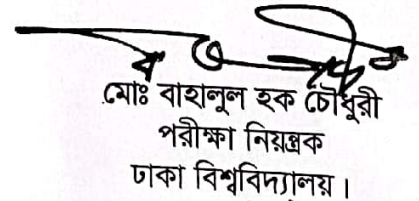 মোঃ বাহালুল হক চৌধুরী
পরীক্ষা নিয়ন্ত্রক
ঢাকা বিশ্ববিদ্যালয়।